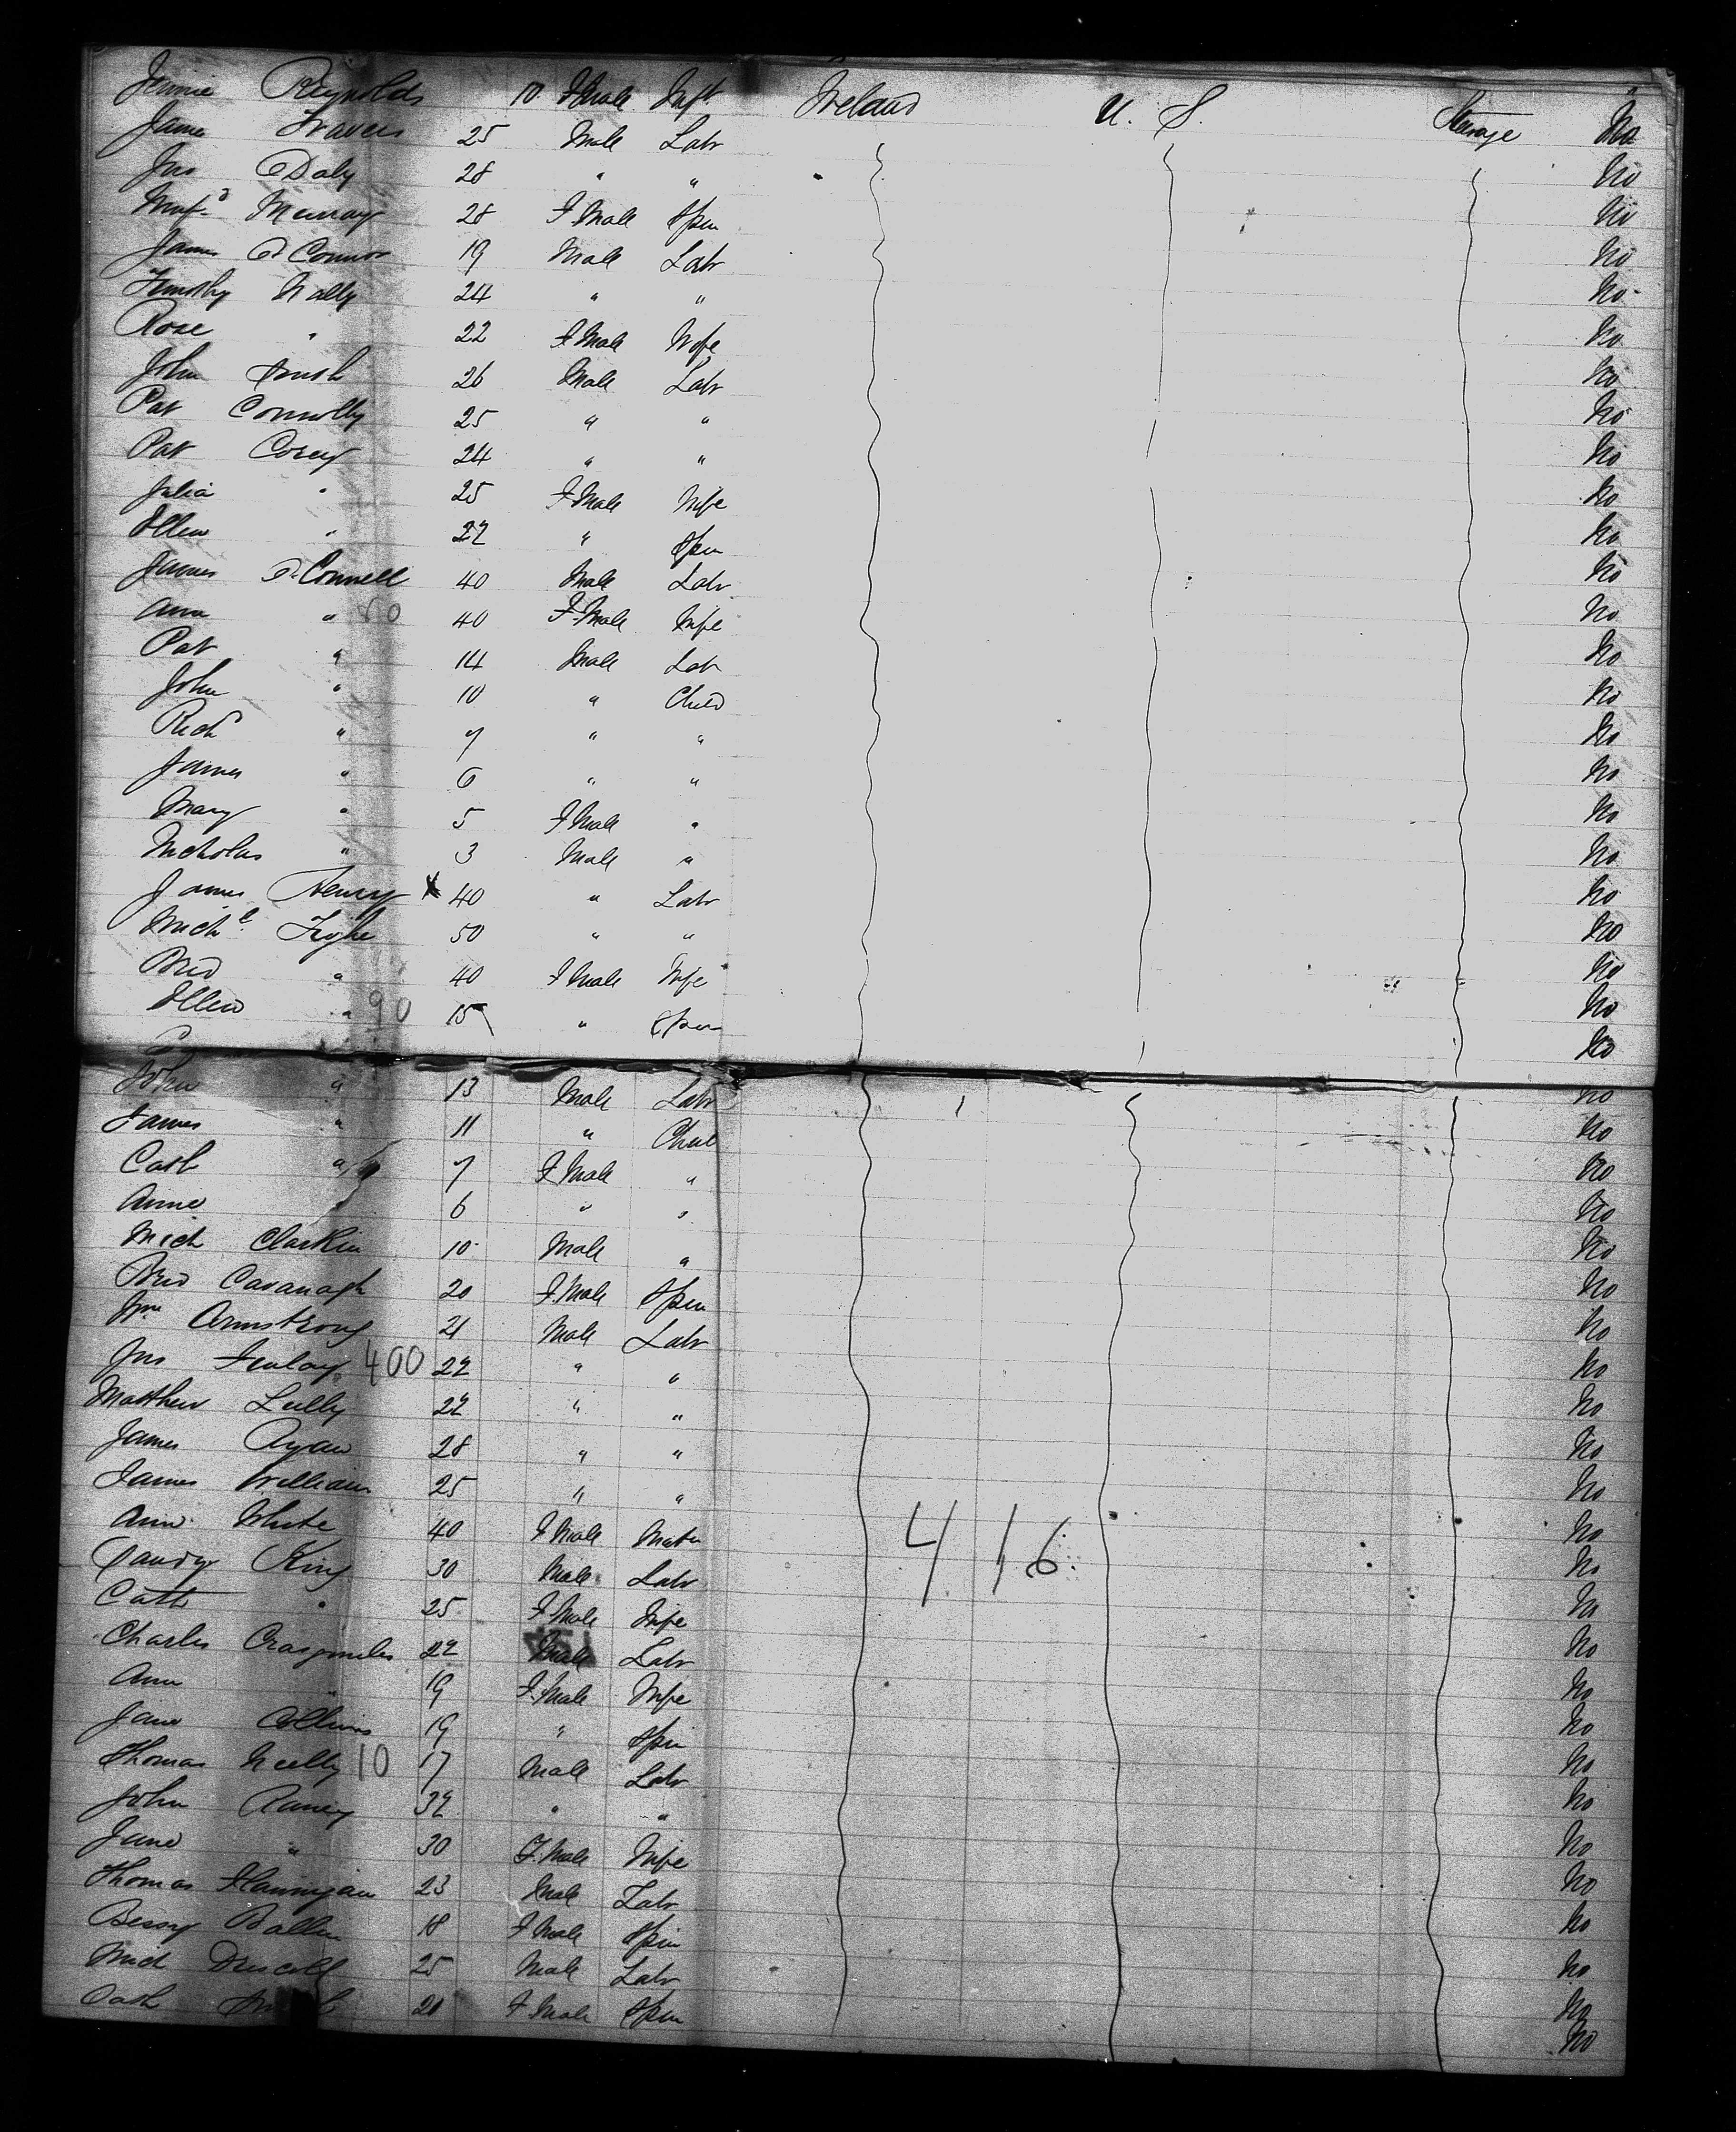 Jennie Reynolds 10 F Male Inft Ireland U. S. Steerage "
James Travers 25 Male Labr No
Jno Daly 28 " " No
Margt Murray 28 F Male Spin No
James O'Connor 19 Male Labr No
Timothy Nally 24 " " No
Rose " 22 F Male Wife No
John Smith 26 Male Labr No
Pat Connolly 25 " " No
Pat Corey 24 " " No
Julia " 25 F Male Wife No
Ellen " 22 " Spin No
James O'Connell 40 Male Labr No
Ann " 80 40 F Male Wife No
Pat " 14 Male Labr No
John " 10 " Child No
Richd " 7 " " No
James " 6 " " No
Mary " 5 F Male " No
Nicholas " 3 Male " No
James Henry x 40 " Labr No
Michl Tighe 50 " " No
Brid " 40 F Male Wife No
Ellen " 90 15 " Spin No
No
John " 13 Male Labr No
James " 11 " Child No
Cath " 7 F Male " No
Anne " 6 " " No
Mich Clarkin 10 Male " No
Brid Cavanagh 20 F Male Spin No
Wm Armstrong 21 Male Labr No
Jno 400 22 " " No
Matthew Lully 22 " " No
James Ryan 28 " " No
James William 25 " " No
Ann White 40 F Male Matn No
416
King 30 Male Labr No
Cath " 25 F Male Wife No
Charles 22 Male Labr No
Ann " 19 F Male Wife No
Jane Collins 19 " Spin No
Thomas Neelly 10 17 Male Labr No
John Raney 32 " " No
Jane " 30 F Male Wife No
Thomas Flannigan 23 Male Labr No
Bessy 18 F Male Spin No
Mich Driscoll 25 Male Labr No
Cath 20 F Male Spin No
No